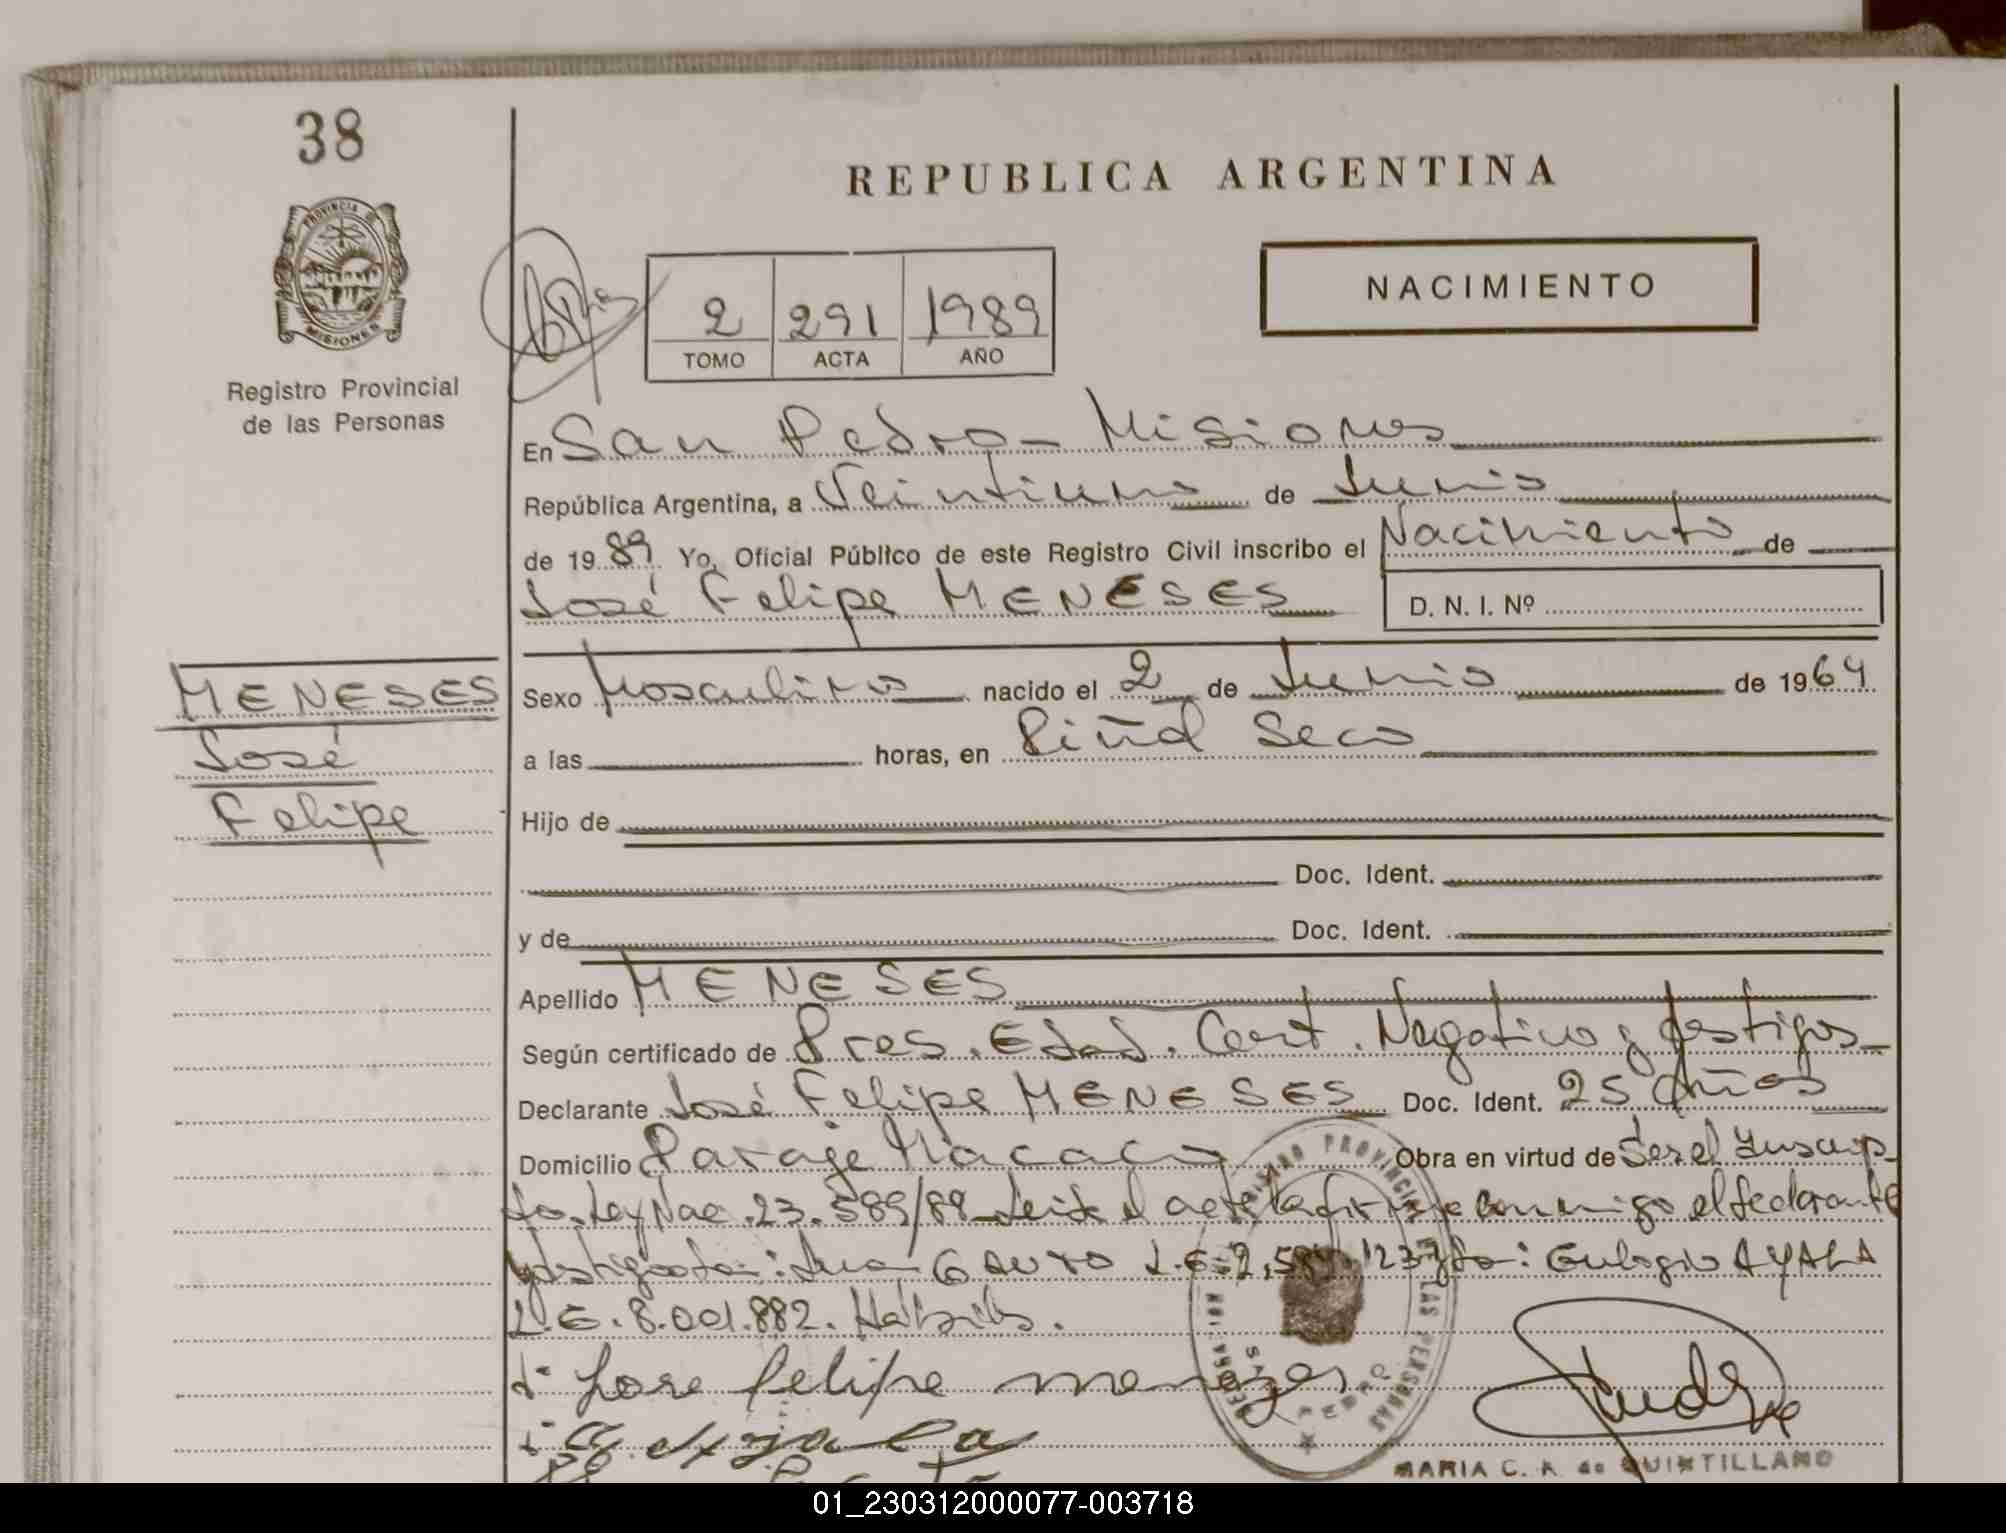 38
REPUBLICA ARGENTINA
PROVINCIA DE
MISIONES
Registro Provincial
de las Personas
NACIMIENTO
2 291 1989
TOMO ACTA AÑO
En San Pedro - Misiones
República Argentina, a Veintiuno de Junio
de 1989 Yo, Oficial Público de este Registro Civil inscribo el Nacimiento de
José Felipe MENESES D. N. I. Nº
MENESES
José
Felipe
Sexo Masculino nacido el 2 de Junio de 1964
a las horas, en Piñal Seco
Hijo de
Doc. Ident.
y de Doc. Ident.
Apellido MENESES
Según certificado de Pres. Edad. Cert. Negativo y testigos
Declarante José Felipe MENESES Doc. Ident. 25 años
Domicilio Paraje Macaco Obra en virtud de Ser el Inscrip-
to. Ley Nac. 23.589/88 Leída el acta la firma conmigo el declarante
y testigos
L.E. 2,58 Eulogio AYALA
L.E. 8.001.882. Hábiles.
Jose felipe meneses
MARIA C. A. de QUINTILLANO
01_230312000077-003718